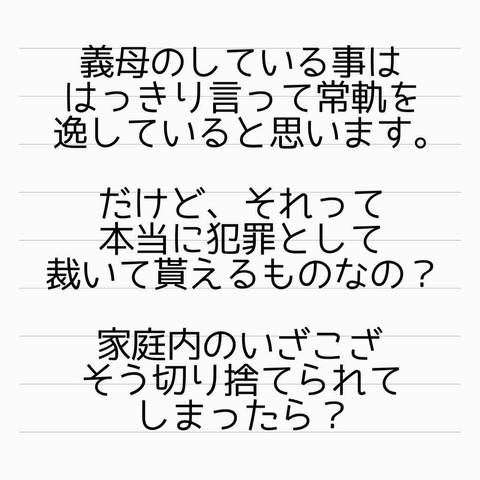 義母のしている事は
はっきり言って常軌を
逸していると思います。
だけど、それって
本当に犯罪として
裁いて貰えるものなの？
家庭内のいざこざ
そう切り捨てられて
しまったら？